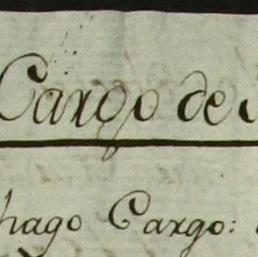 Cargo de
hago Cargo: